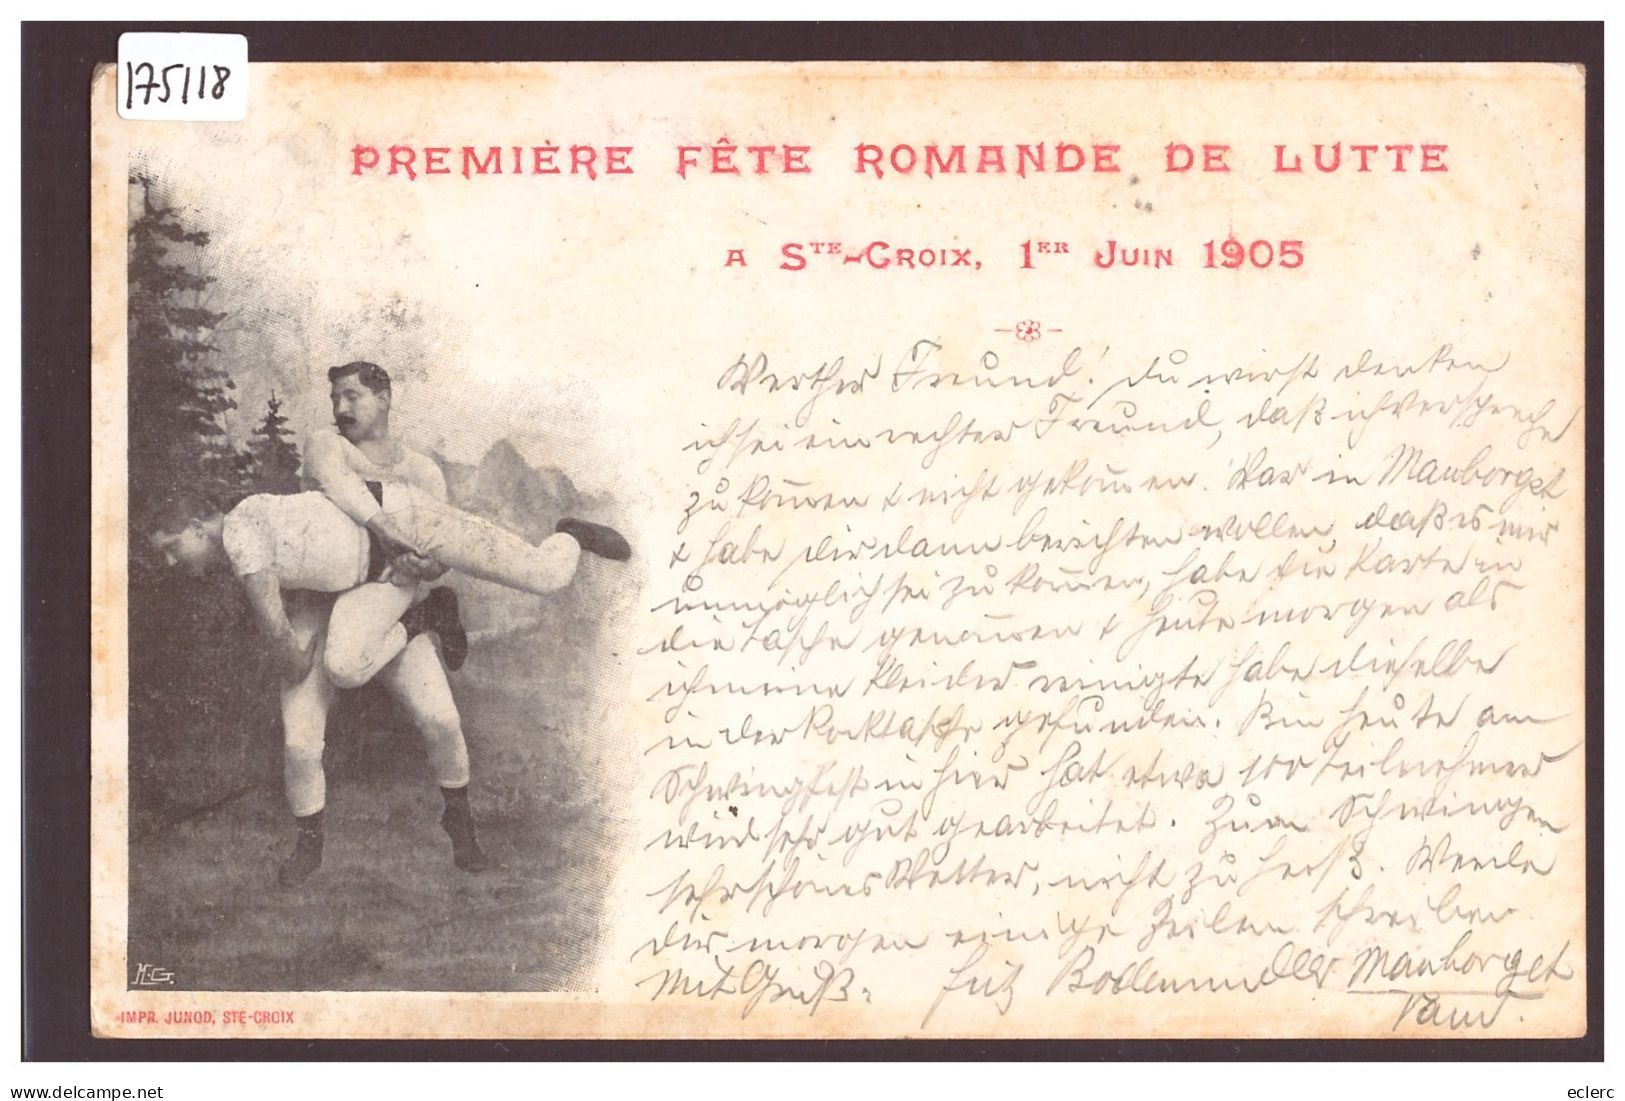 175118
PREMIÈRE FÊTE ROMANDE DE LUTTE
A STE-CROIX, 1ER JUIN 1905
Werther Freund! Du wirst denken
ich sei ein rechter Freund, daß ich verspreche
zu kom̅en & nicht gekom̅en. War in Mauborget
& habe dir dann berichten wollen, daß es mir
unmöglich sei zu kom̅en, habe die Karte in
die Tasche genom̅en & heute morgen als
ich meine Kleider reinigte habe dieselbe
in der Rocktasche gefunden. Bin heute am
Schwingfest in hier hat etwa 100 Teilnehmer
wird sehr gut gearbeitet. Zum Schwingen
sehr schönes Wetter, nicht zu heiß. Werde
dir morgen einige Zeilen schreiben
Mit Gruß. Fritz Mauborget
Vaud.
H.G.
IMPR. JUNOD, STE-CROIX
delcampe.net
eclerc